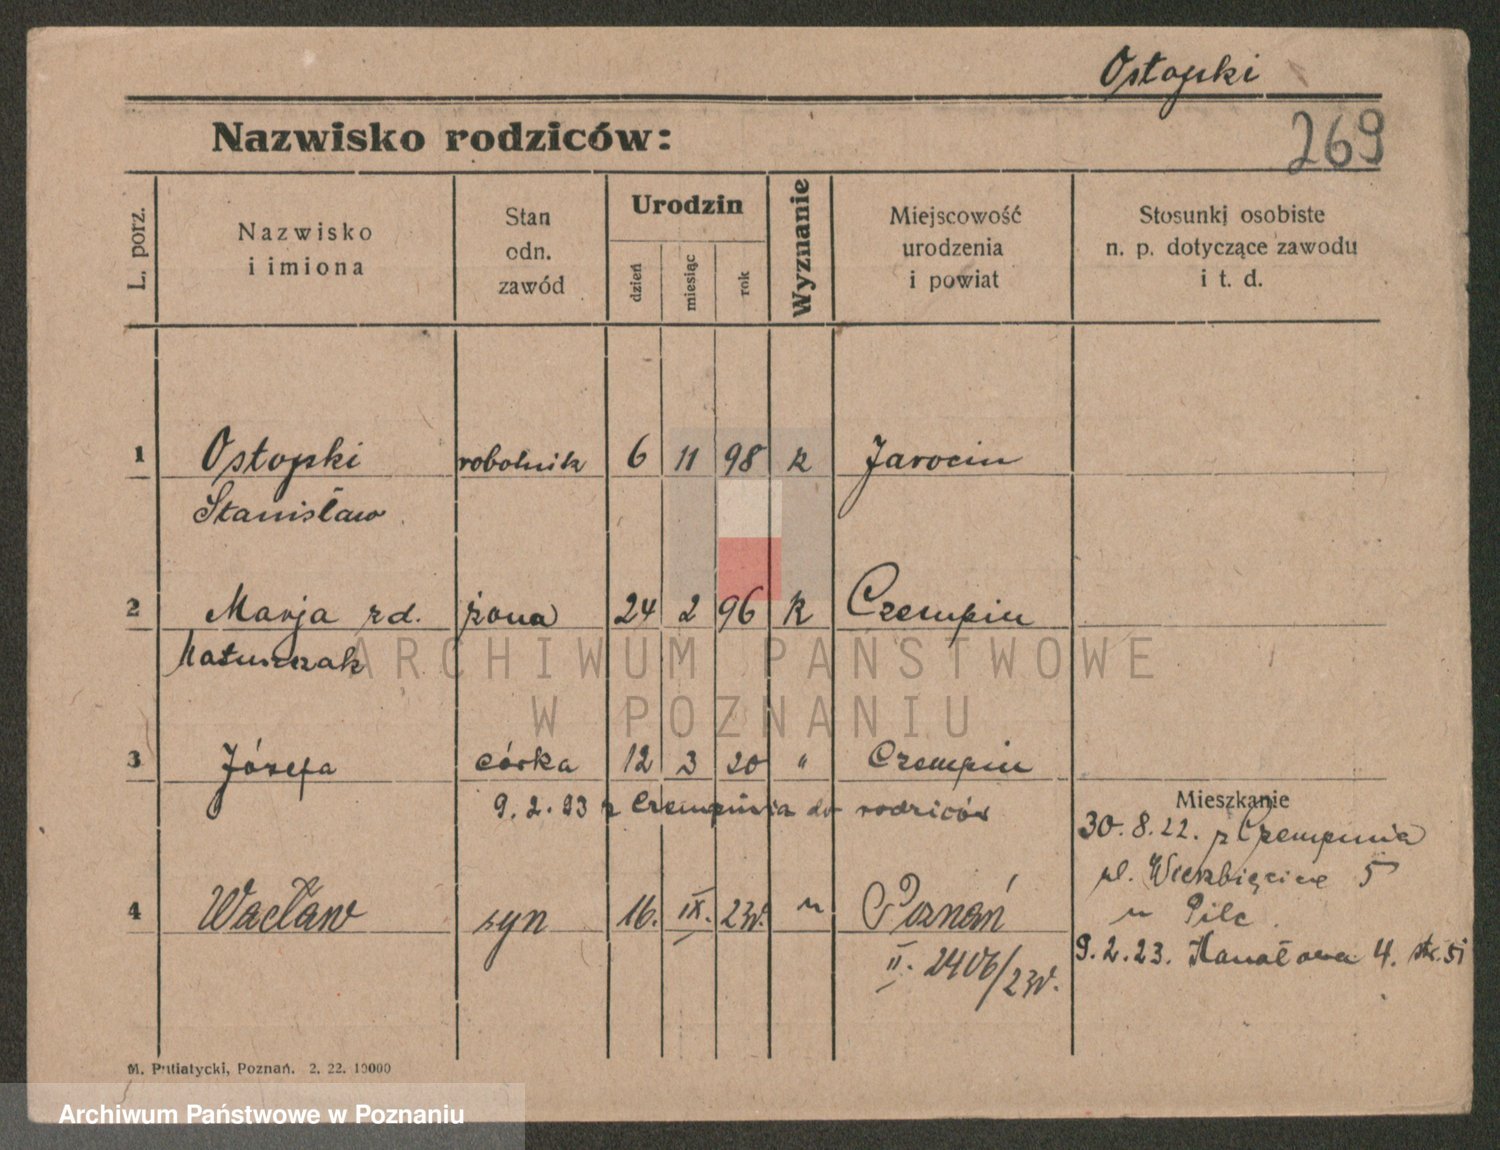 Ostopski
269
Nazwisko rodziców:
L. porz.
Nazwisko
i imiona
Stan
odn.
zawód
Urodzin
dzień
miesiąc
rok
Wyznanie
Miejscowość
urodzenia
i powiat
Stosunki osobiste
n. p. dotyczące zawodu
i t. d.
1 Ostopski robotnik 6 11 98 k Jarocin
Stanisław
2 Marja zd. żona 24 2 96 k Czempin
3 Józefa córka 12 3 20 " Czempin
9.2.23 z Czempinia do rodziców
Mieszkanie
30.8.22. z Czempinia
5
4 Wacław syn 16. IX. 23r. " Poznań
u
9.2.23. Kanałowa 4.
II. 2406/23r.
M. Putiatycki, Poznań. 2. 22. 10000
ARCHIWUM PAŃSTWOWE
W POZNANIU
Archiwum Państwowe w Poznaniu